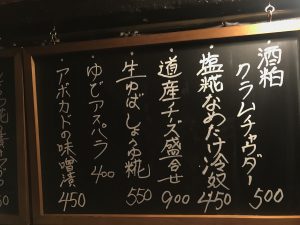 ・酒粕クラムチャウダー 500
・塩糀なめたけ冷奴 450
・道産チーズ盛合せ 900
・生ゆばしょうゆ糀 550
・ゆでアスパラ 400
・アボカドの味噌漬 450